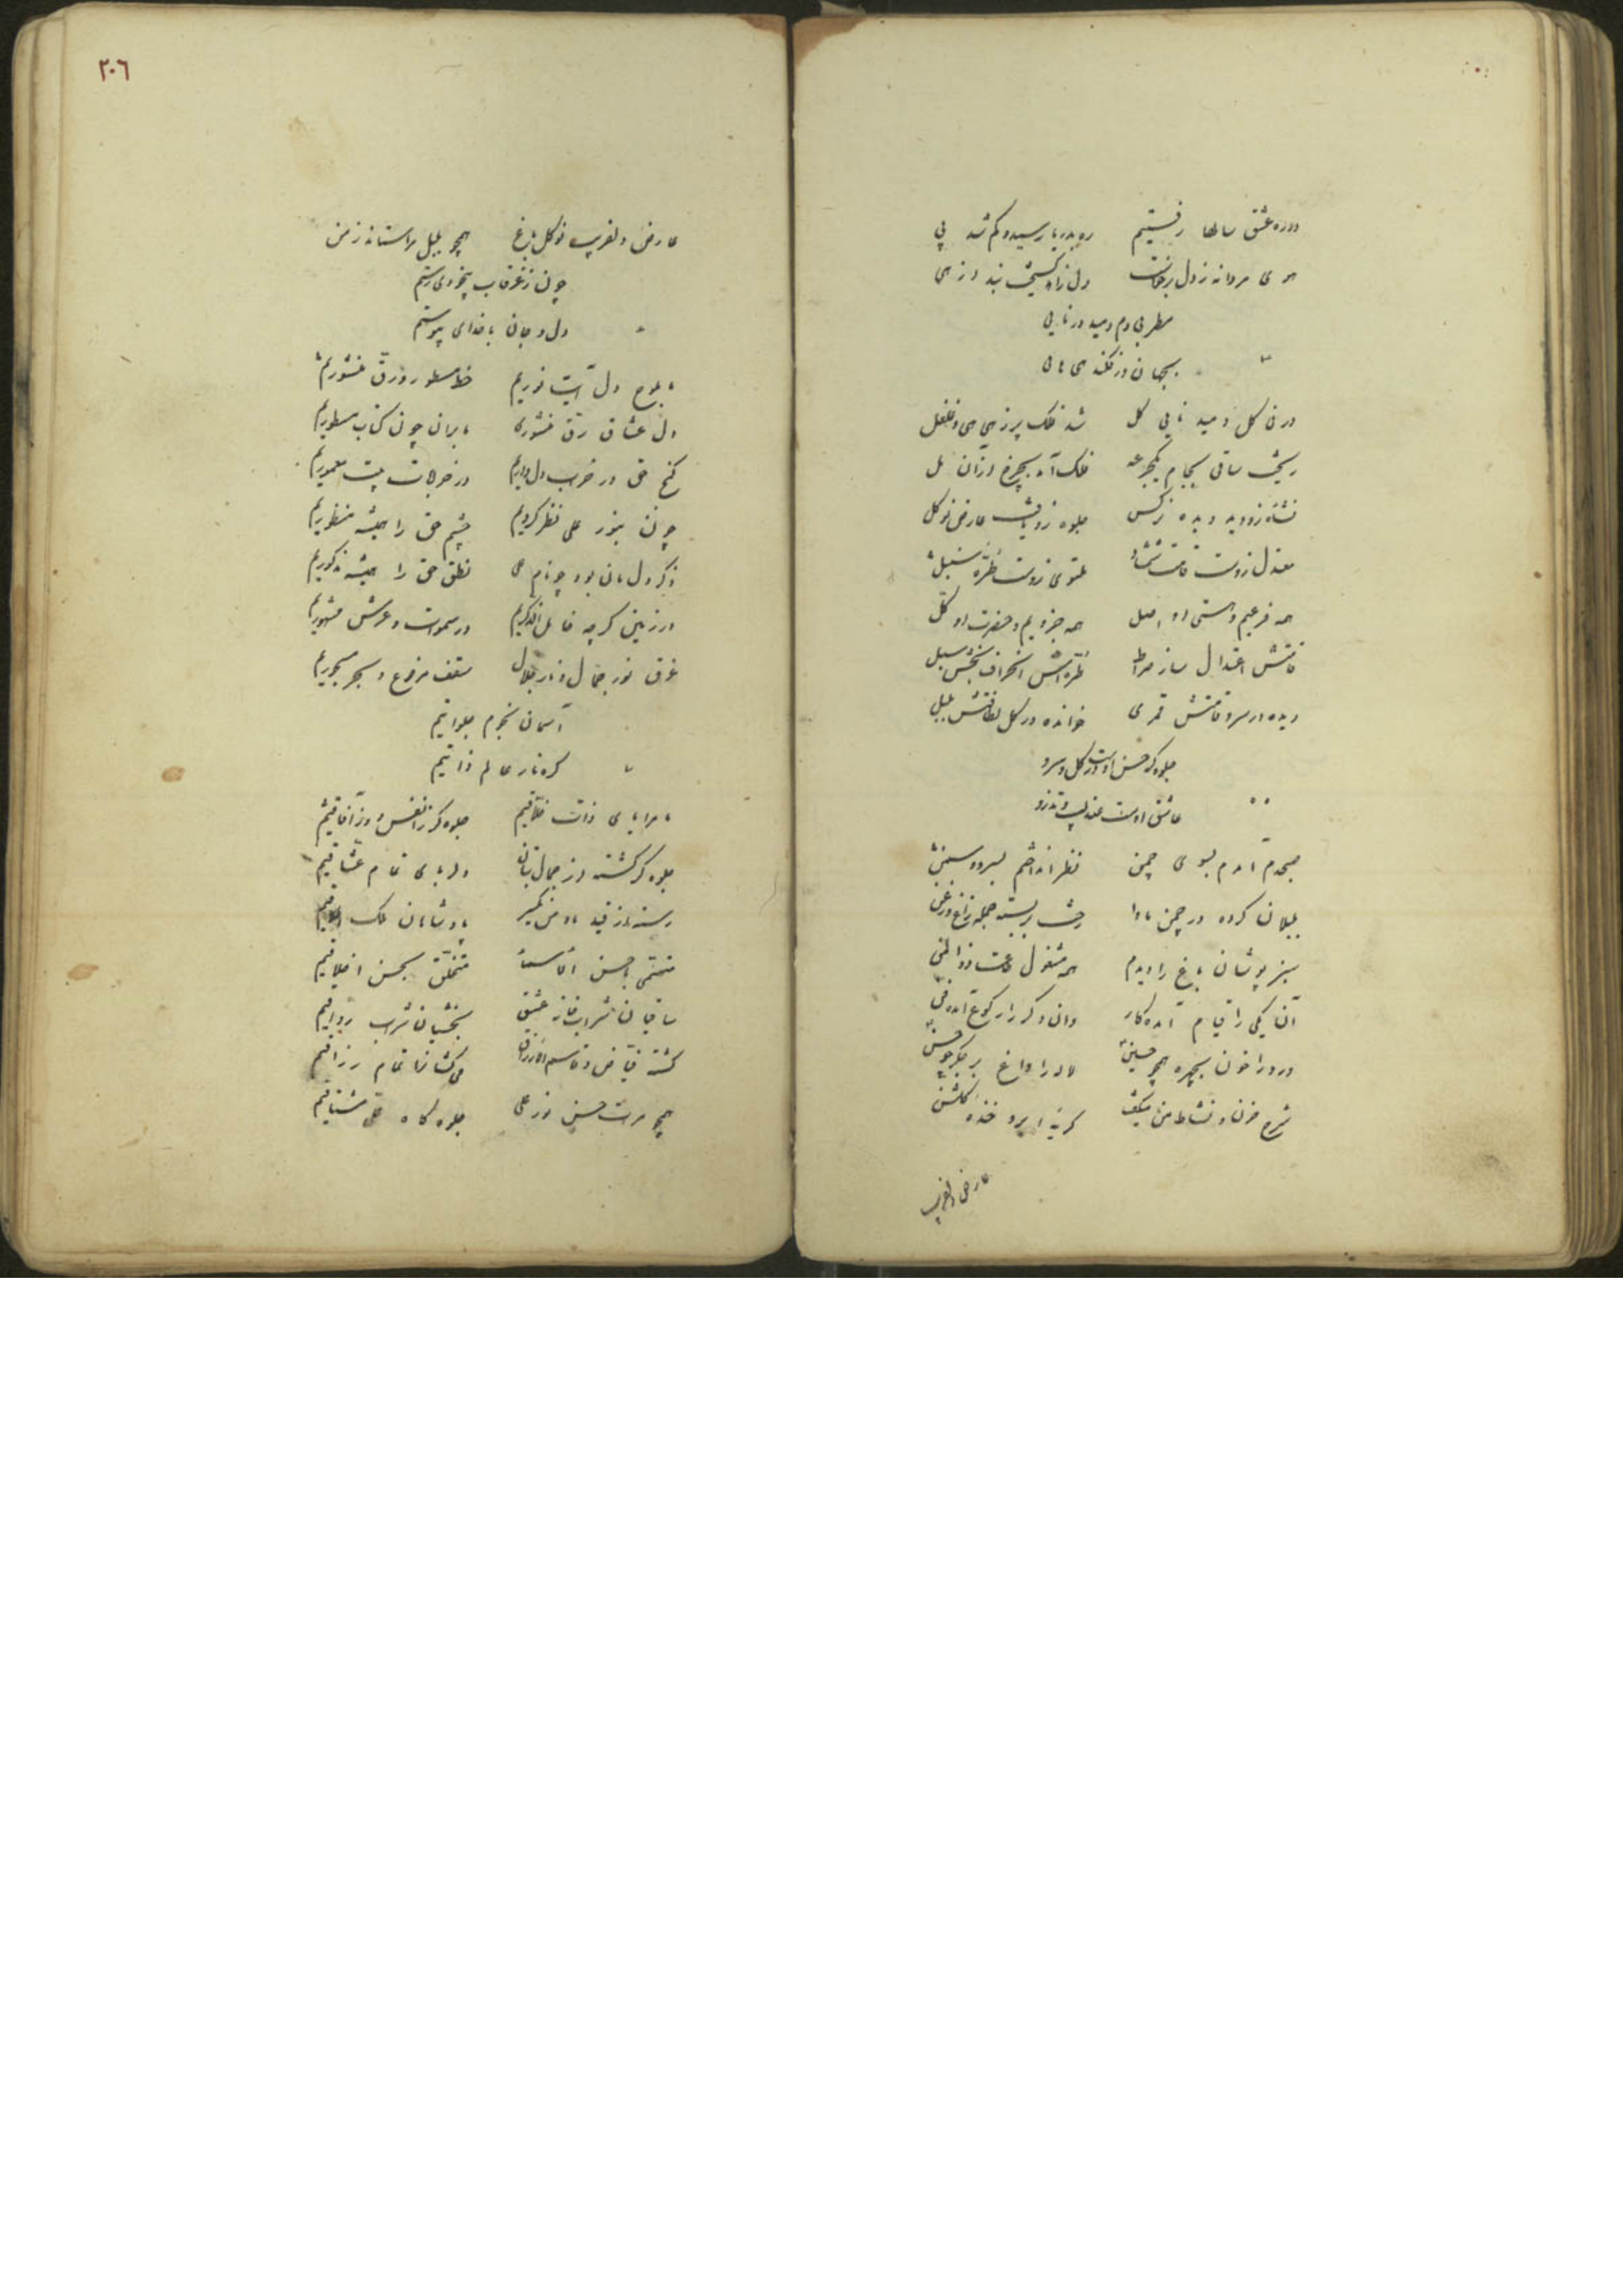 در ره عشق سالها رفتیم    ره بدریا رسید و گم شد پی
هوی مردانه ز دل برخاست    دل زاه کسیخت بند از هی
مطربی دم دمید در نایی
بجهان در فکند هی هایی
در نی کل دمید نایی کل    شد فلک پر ز هی هی و غلغل
ریخت ساقی بجام یکجرعه    فلک آمد بچرخ از آن مل
نشئه زو دید دیده نرکس    جلوه زو یافت عارض نوکل
معتدل زوست قامت شمشاد    ملتوی زوست طره سنبل
همه فرعیم و هستی او اصل    همه جزویم و حضرت او کل
قامتش اعتدال ساز صراط    طره‌اش انحراف بخش سبل
دیده در سرو قامتش قمری    خوانده در کل لطافتش بلبل
جلوه کر حسن اوست در کل و سرو
عاشق اوست عندلیب و تذرو
صبحدم آمدم بسوی چمن    نظر انداختم بسرو و سمن
بلبلان کرده در چمن ماوا    رخت بربسته جمله زاغ و زغن
سبز پوشان باغ را دیدم    همه مشغول طاعت ذو المن
آن یکی را قیام آمده کار    وان دکر را رکوع آمده فن
درد را خون بچهره همچو حسین    لاله را داغ بر جکر چو حسن
شرح حزن و نشاط من میکفت    کریه ابر و خنده کلشن
عارض دلفریب
٢٠٦
عارض دلفریب نوکل باغ    همچو بلبل مراستاند ز من
چون ز غرقاب بیخودی رستم
دل و جان با خدای پیوستم
ما بلوح دل آیت نوریم    خط مسطور و رق منشوریم
دل عشاق رق منشوری    ما بر آن چون کتاب مسطوریم
کنج حق در خراب دل داریم    در خرابات بیت معموریم
چون بنور علی نظر کردیم    چشم حق را همیشه منظوریم
ذکر دل مان بود چو نام علی    نطق حق را همیشه مذکوریم
در زمین کرچه خامل الذکریم    در سموات و عرش مشهوریم
غرق نور جمال و نار جلال    سقف مرفوع و بحر مسجوریم
آسمان نجوم جلواتیم
کره نار عالم ذاتیم
ما مرایای ذات خلاقیم    جلوه کر ز انفس و ز آفاقیم
جلوه کر کشته از جمال بتان    دلربای تمام عشاقیم
رسته از قید ما و من یکسر    پادشاهان ملک اطلاقیم
متسمی باحسن الاسماء    متخلق بحسن اخلاقیم
ساقیان شرابخانه عشق    بخشیان شراب رواقیم
کشته فیاض و قاسم الارزاق    می کشانرا تمام رزاقیم
همچو مرآت حسن نور علی    جلوه کاه حق مشتاقیم